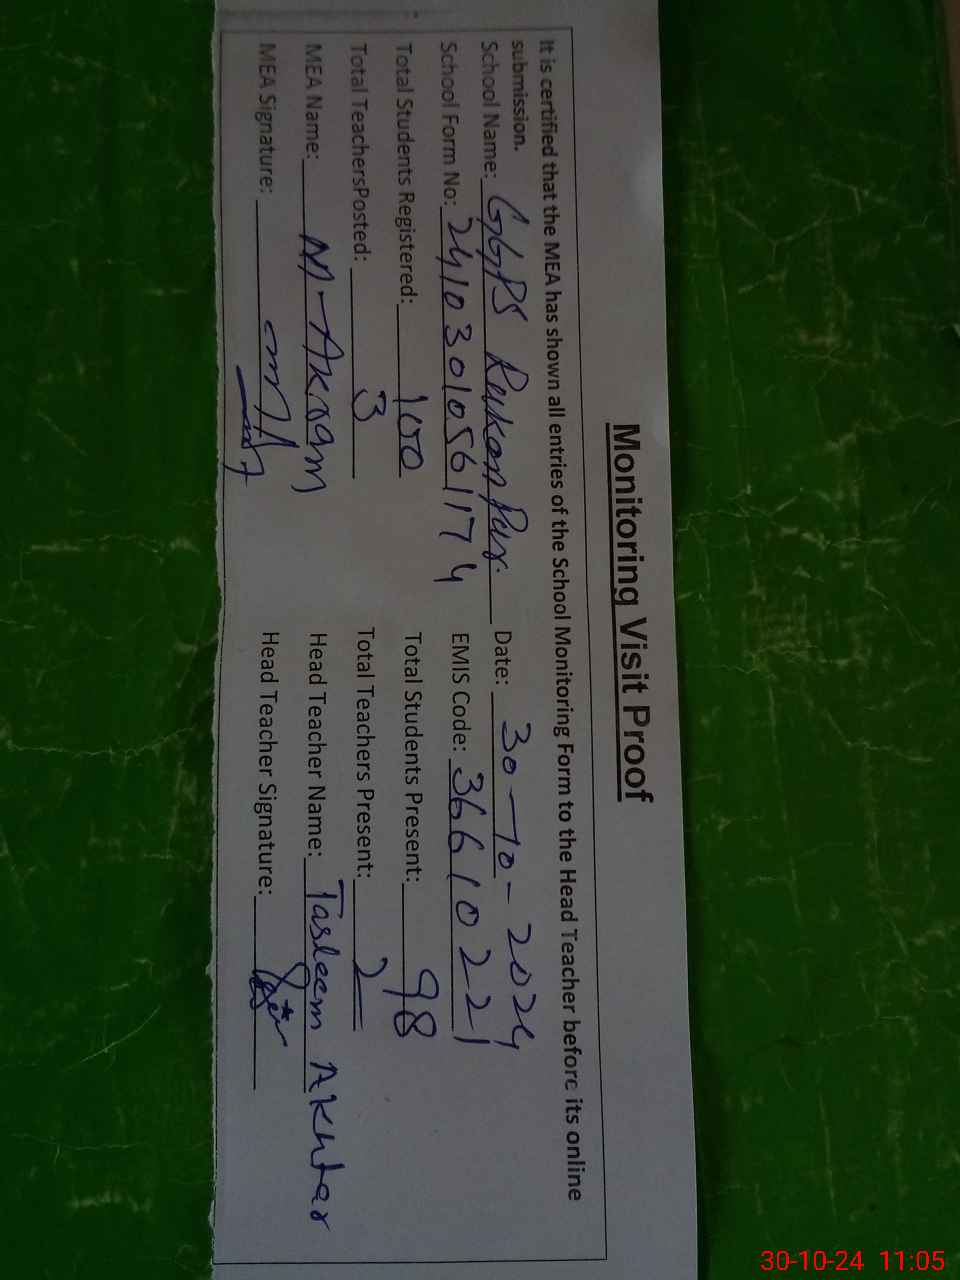 Monitoring Visit Proof
It is certified that the MEA has shown all entries of the School Monitoring Form to the Head Teacher before its online
submission.
School Name: GGPS Rukan Pur. Date: 30-10-2024
School Form No: 2410301056 1174 EMIS Code: 36610221
Total Students Registered: 100 Total Students Present: 98
Total TeachersPosted: 3 Total Teachers Present: 2
MEA Name: M-Akram Head Teacher Name: Tasleem Akhtar
MEA Signature: Head Teacher Signature:
30-10-24 11:05